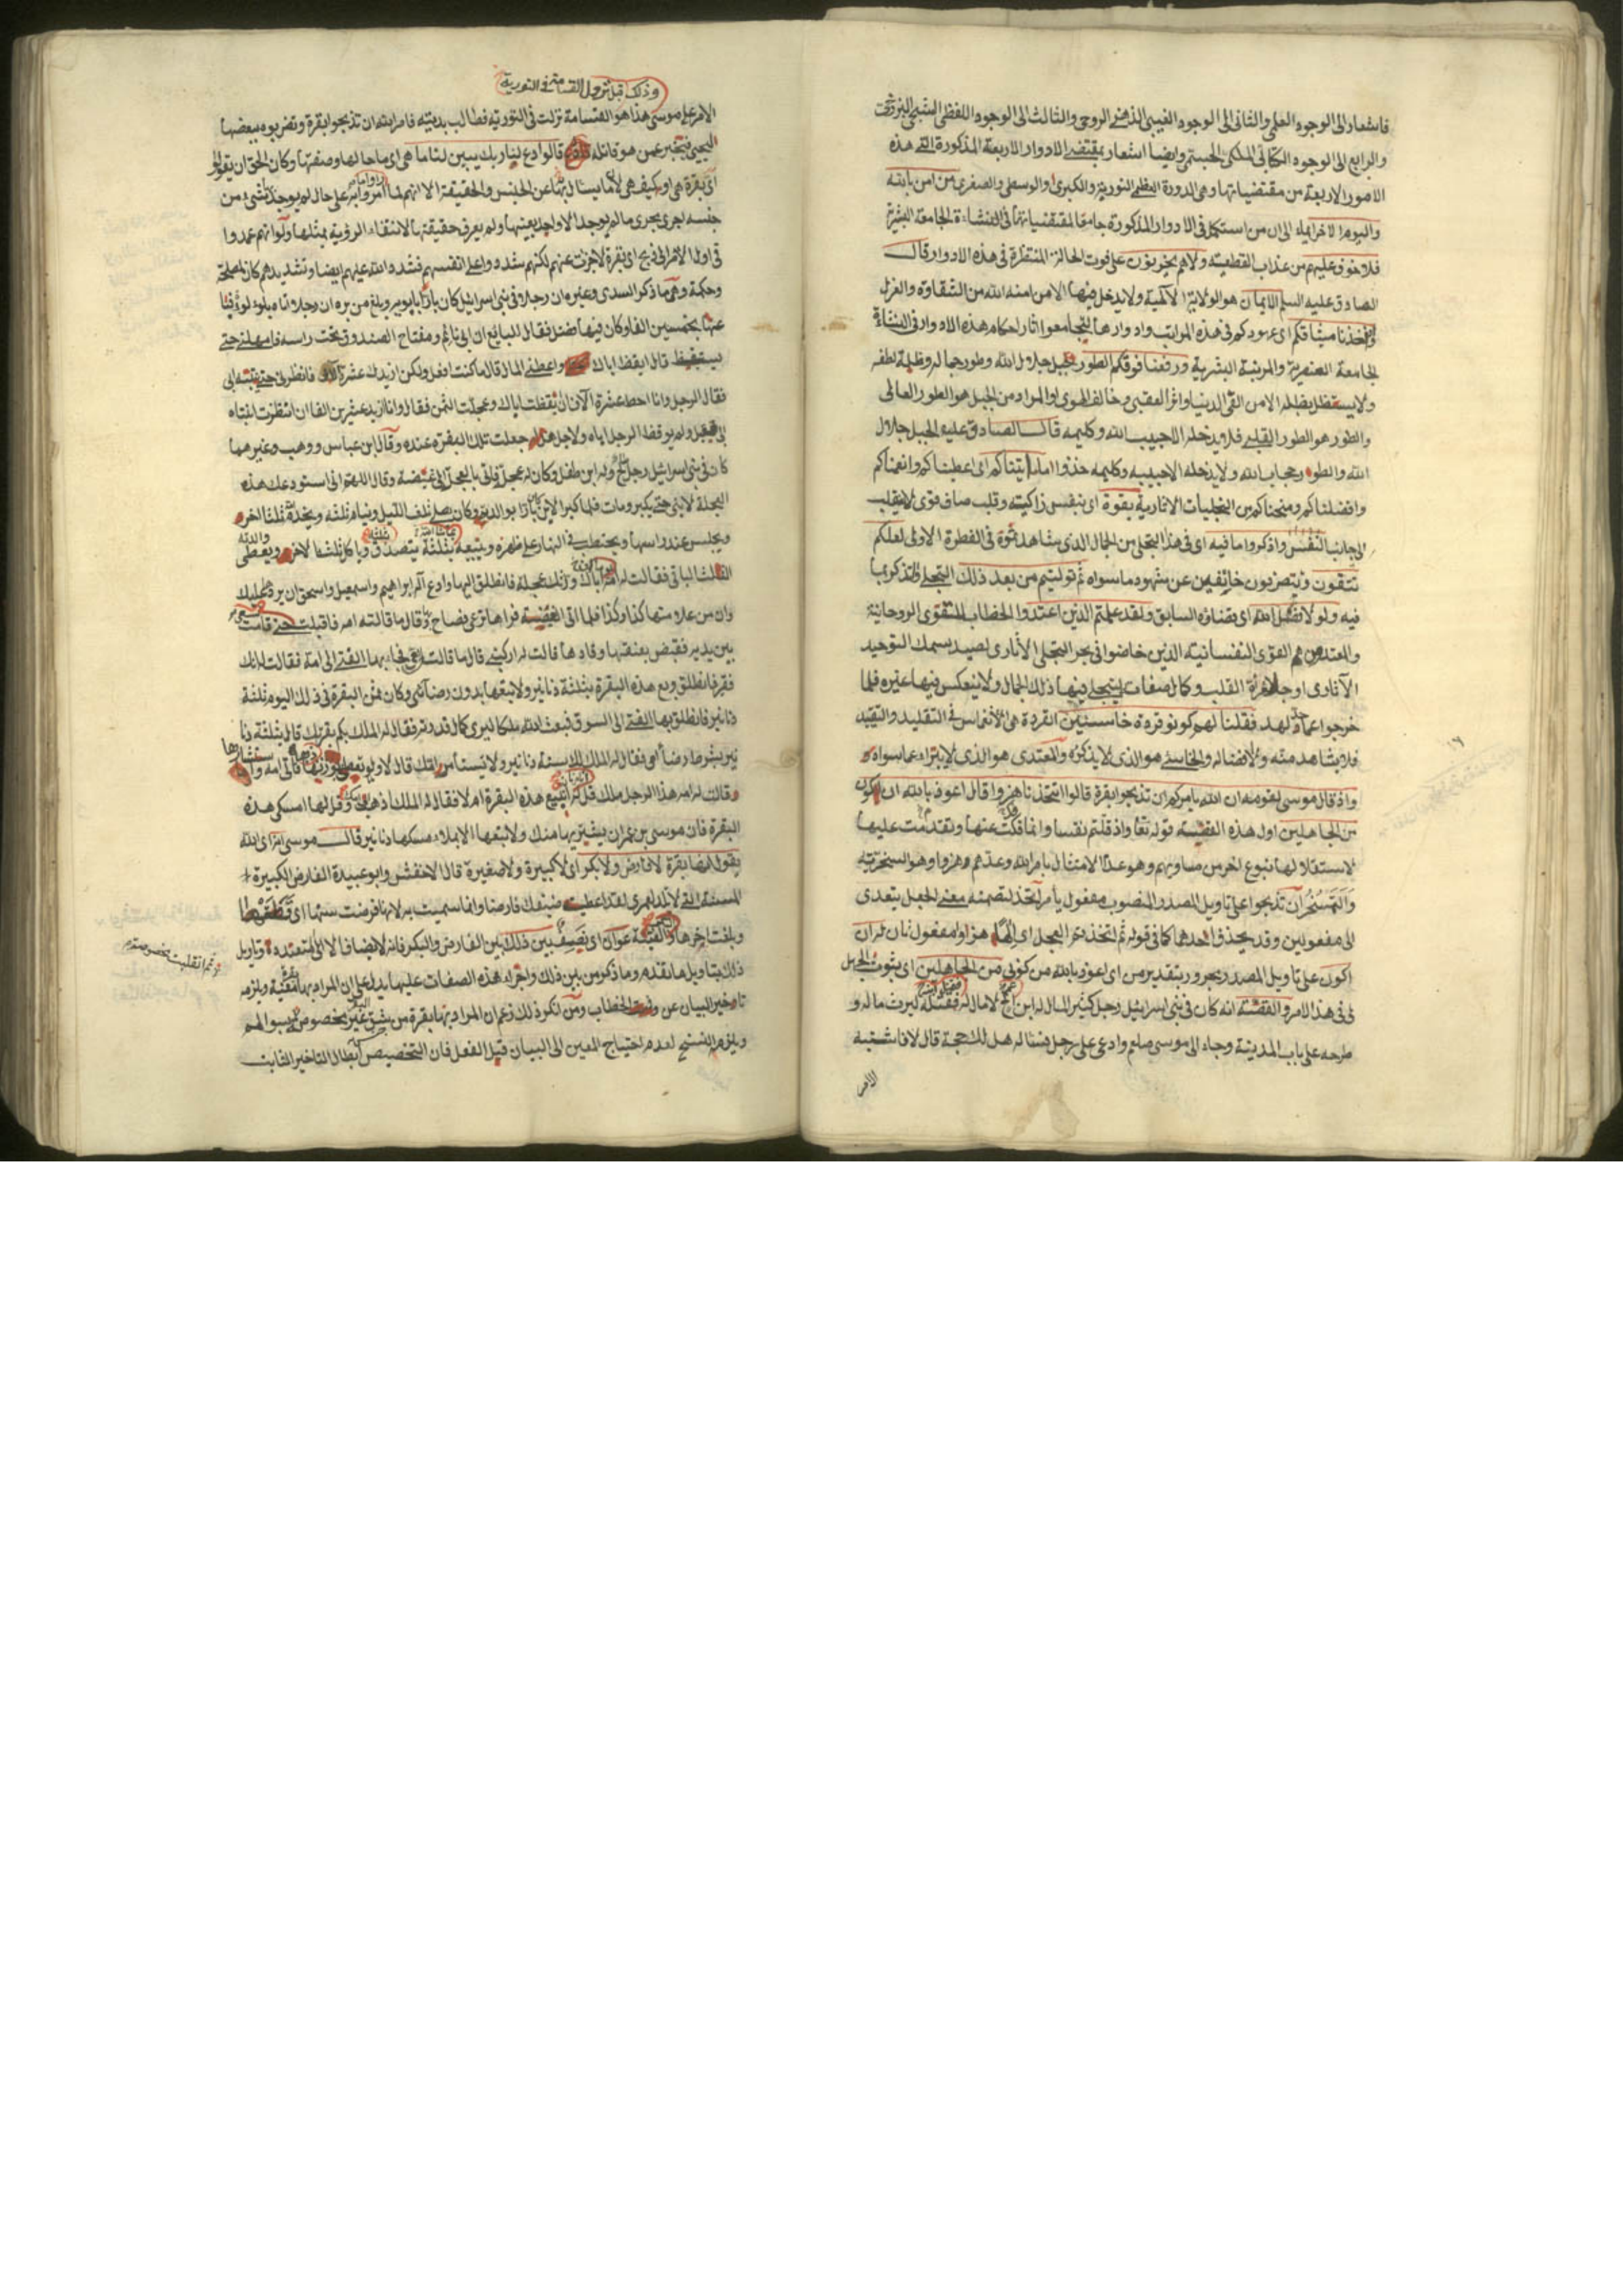 فاشعار الى الوجود العلمي والثاني الى الوجود الغيبي الذهني الروحي والثالث الى الوجود اللفظي
والرابع الى الوجود الكتابي الملكي الجسمي وايضا اشعار بمقتضى الادوار الاربعة المذكورة التي هذه
الامور الاربعة من مقتضياتها وهي الدورة العظمى النورية والكبرى والوسطى والصغرى من امن بالله
واليوم الاخر ايماء الى ان من استكمل في الادوار المذكورة جامعا لمقتضياتها في النشاءة الجامعة البشرية
فلا خوف عليهم من عذاب القطعية ولا هم يحزنون على فوت الحالة المنتظرة في هذه الادوار قال
الصادق عليه السلم الايمان هو الولاية الالهية ولا يدخل فيها الا من امنه الله من الشقاوة والعزل
واذ اخذنا ميثاقكم اى عهودكم في هذه المراتب وادوارها لتجامعوا اثار احكام هذه الادوار في النشاءة
الجامعة العنصرية والمرتبة البشرية ورفعنا فوقكم الطور جبل جلال الله وطور جماله وظلمة لطفه
ولا يستظل بظله الا من الدنيا واثر العقبى وخالف الهوى او المراد من الجبل هو الطور العالى
والطور هو الطور القلبى فلا يدخله الا حبيب الله وكليمه قال الصادق عليه الجبل جلال
الله والطور حجاب الله ولا يدخله الا حبيبه وكليمه خذوا ما اتيناكم اى اعطيناكم وانعمناكم
وافضلناكم ومنحناكم من التجليات الاثارية بقوة اى بنفس زاكية وقلب صاف قوى لا ينقلب
الى جانب النفس واذكروا ما فيه اى في هذا التجلى من الجمال الذى شاهدتموه في الفطرة الاولى لعلكم
تتقون وتصيرون خائفين عن شهود ما سواه ثم توليتم من بعد ذلك التجلى
فيه ولولا فضل الله اى بقضائه السابق ولقد علمتم الذين اعتدوا الخطاب للقوى الروحانية
والمعتدون هم القوى النفسانية الذين خاضوا في بحر التجلى الاثارى لصيد سمك التوحيد
الآثارى القلب وكمال صفات ليتجلى فيها ذلك الجمال ولا ينعكس فيها غيره فلما
خرجوا عما لهم فقلنا لهم كونوا قردة خاسئين القردة هى الانغماس في التقليد والتقيد
فلا يشاهد منه ولا افضاله والخاسئ هو الذى لا يذكره والمعتدى هو الذى لا يتبراء عما سواه
واذ قال موسى لقومه ان الله يامركم ان تذبحوا بقرة قالوا اتتخذنا هزوا قال اعوذ بالله ان اكون
من الجاهلين اول هذه القصة قوله تعا واذ قتلتم نفسا وانما فكت عنها وتقدمت عليها
لاستقلالها بنوع اخر من مساويهم وهو عدم الامتثال بامر الله وعدهم هزوا وهو السخرية
والتمسخر ان تذبحوا على تاويل المصدر المنصوب مفعول يأمر اتخذ لتضمنه معنى الجعل يتعدى
الى مفعولين وقد يحذف احدهما كما في قوله ثم اتخذتم العجل اى الها هزوا مفعول ثان له ان
اكون على تاويل المصدر مجرور بتقدير من اى اعوذ بالله من كونى من الجاهلين اى
في هذا الامر والقصة انه كان في بنى اسرائيل رجل كثير المال له ابن عم لا مال له فقتله ليرث ماله و
طرحه على باب المدينة وجاء الى موسى صلعم وادعى على رجل فساله هل لك حجة قال لا فاشتبه
الامر
١٦
وذلك قبل نزول القسامة في التورية
الامر على موسى هذا هو القسامة نزلت في التورية فطالب بديته فامر الله ان تذبحوا بقرة وتضربوه ببعضها
ليحيى فيخبر عمن هو قاتله قالوا ادع لنا ربك يبين لنا ما هى اى ما حالها وصفتها وكان الحق ان يقولوا
اى بقرة هى او كيف هى لان ما يسئال بها عن الجنس والحقيقة الا انهم لما امروا به على حال لم يوجد شئ من
جنسه اجرى مجرى ما لم يوجد الا واحد بعينها ولم يعرف حقيقتها لانتفاء الرؤية بمثلها ولو انهم عمدوا
في اول الامر الى ذبح اى بقرة لاجزت عنهم لكنهم شددوا على انفسهم فشدد الله عليهم ايضا وتشديدهم كان لمصلحة
وحكمة وهى ما ذكر السدى وغيره ان رجلا في بنى اسرائيل كان بارا بابويه وبلغ من بره ان رجلا اتاه بلؤلؤ فابتا
عها بخمسين الفا وكان فيها فضل فقال للبائع ان ابى نائم ومفتاح الصندوق تحت راسه فامهلنى حتى
يستيقظ قال ايقظ اباك واعطنى المال قال ما كنت افعل ولكن ازيدك عشرة آلاف فانظرنى حتى ينتبه ابى
فقال الرجل وانا احط عشرة الآف ان ايقظت اباك وعجلت الثمن فقال وانا ازيد عشرين الفا ان انتظرت انتباه
ابى فقبل ولم يوقظ الرجل اباه ولاجل هذا جعلت تلك البقرة عنده وقال ابن عباس ووهب وغيرهما
كان في بنى اسرائيل رجل صالح وله ابن طفل وكان له عجلة فاتى بالعجلة الى غيضة وقال اللهم انى استودعك هذه
العجلة لابنى حتى يكبر ومات فلما كبر الابن كان بارا بوالديه وكان يصلى ثلث الليل وينام ثلثه ويخدم ثلثا اخر
ويجلس عند راسها ويحتطب في النهار على ظهره ويبيعه بثلثة يتصدق وياكل ثلثا لاخر ويعطى والدته
الثلث الباقى فقالت له امه اباك ورثك عجلة فانطلق اليها وادع اله ابراهيم واسمعيل واسحق ان يردها عليك
وان من علامتها كذا وكذا فلما اتى الغيضة فراها ترعى فصاح وقال ما قالته امه فاقبلت حتى قامت
بين يديه فقبض بعنقها وقادها قالت له اركبنى قال ما قالت امى فجاء بها الفتى الى امه فقالت له انك
فقير فانطلق وبع هذه البقرة بثلثة دنانير ولا تبعها بدون رضائى وكان ثمن البقرة في ذلك اليوم ثلثة
دنانير فانطلق بها الفتى الى السوق فبعث الله ملكا ليرى كمال قدرته فقال له الملك بكم بقرتك قال بثلثة دنا
نير بشرط رضا امى فقال له الملك لك ستة دنانير ولا تستأمر امك قال لا
وقالت له امه هذا الرجل ملك قل له اتبيع هذه البقرة ام لا فقال له الملك اذهب وقل لها امسكى هذه
البقرة فان موسى بن عمران يشتريها منك ولا تبعها الا بملاء مسكها دنانير قال موسى انه اى الله
يقول انها بقرة لا فارض ولا بكر اى لا كبيرة ولا صغيرة قال الاخفش وابو عبيدة الفارض الكبيرة
المسنة التى لا تلد لعمرى لقد اعطيت ضيفك فارضا وانما سميت به لانها فرضت سنها اى قطعتها
وبلغت اخرها عوان اى نصف بين ذلك بين الفارض والبكر فانه لا يضاف الا الى المتعدد وتاويل
ذلك بتاويل ما تقدم وما ذكر من بين ذلك واجراء هذه الصفات عليها يدل على ان المراد بها معينة ويلزمه
تاخير البيان عن وقت الخطاب ومن انكر ذلك زعم ان المراد بها بقرة من شق غير مخصوص
ويلزمه النسخ لعدم احتياج المعين الى البيان قبل الفعل فان التخصيص ابطال التاخير الثابت
ثم انقلبت مخصوصة